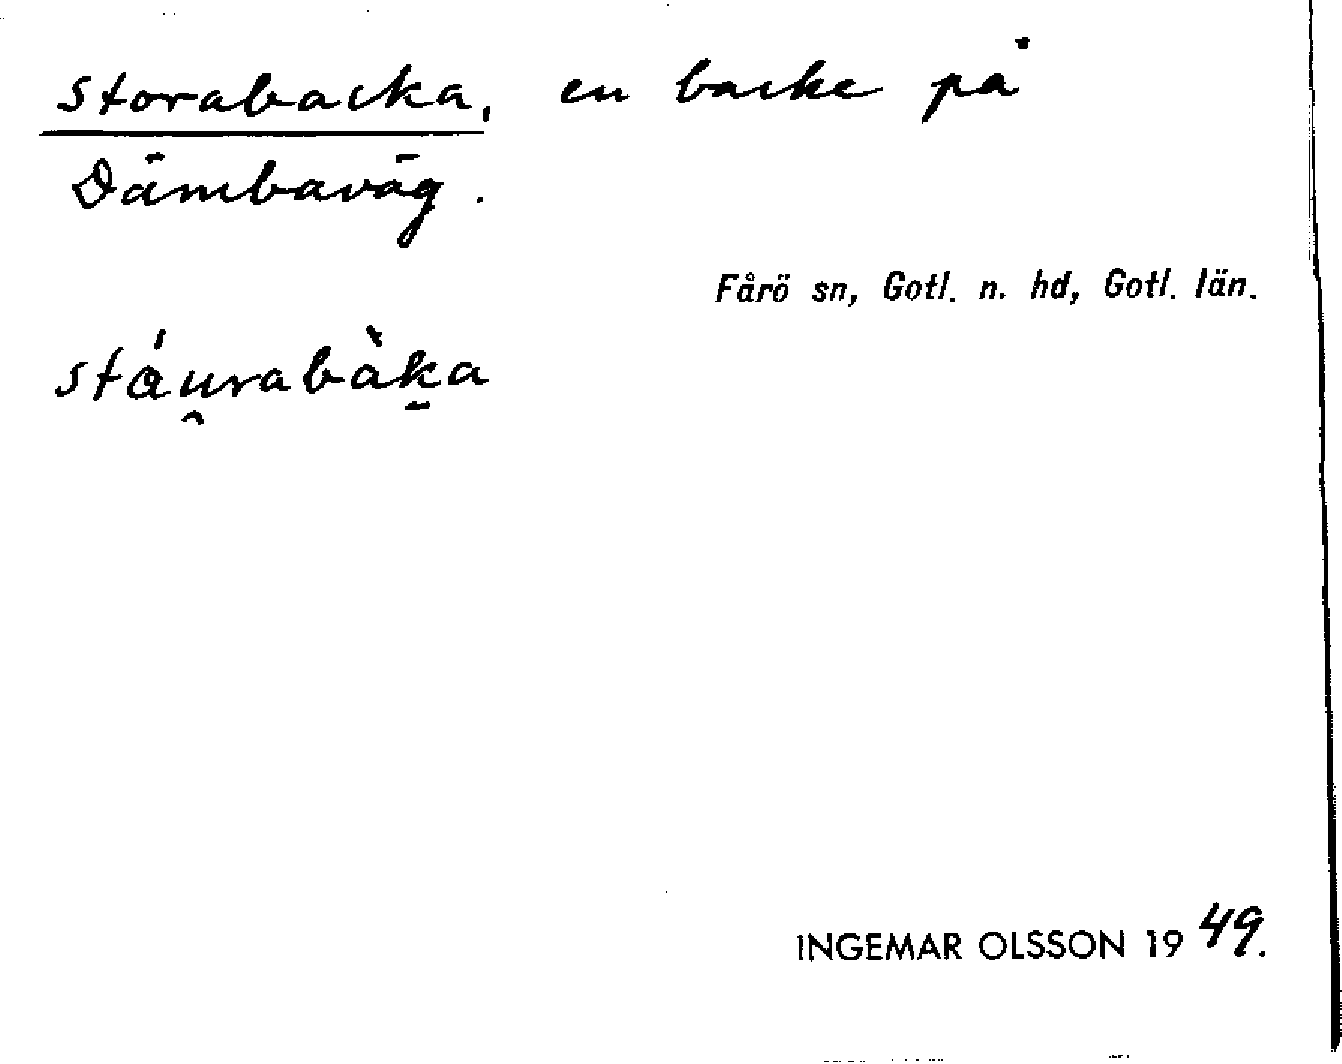 Storabacka, en backe på
Dämbaväg.
Fårö sn, Gotl. n. hd, Gotl. län.
stáu̯rabàk̠a
INGEMAR OLSSON 1949.